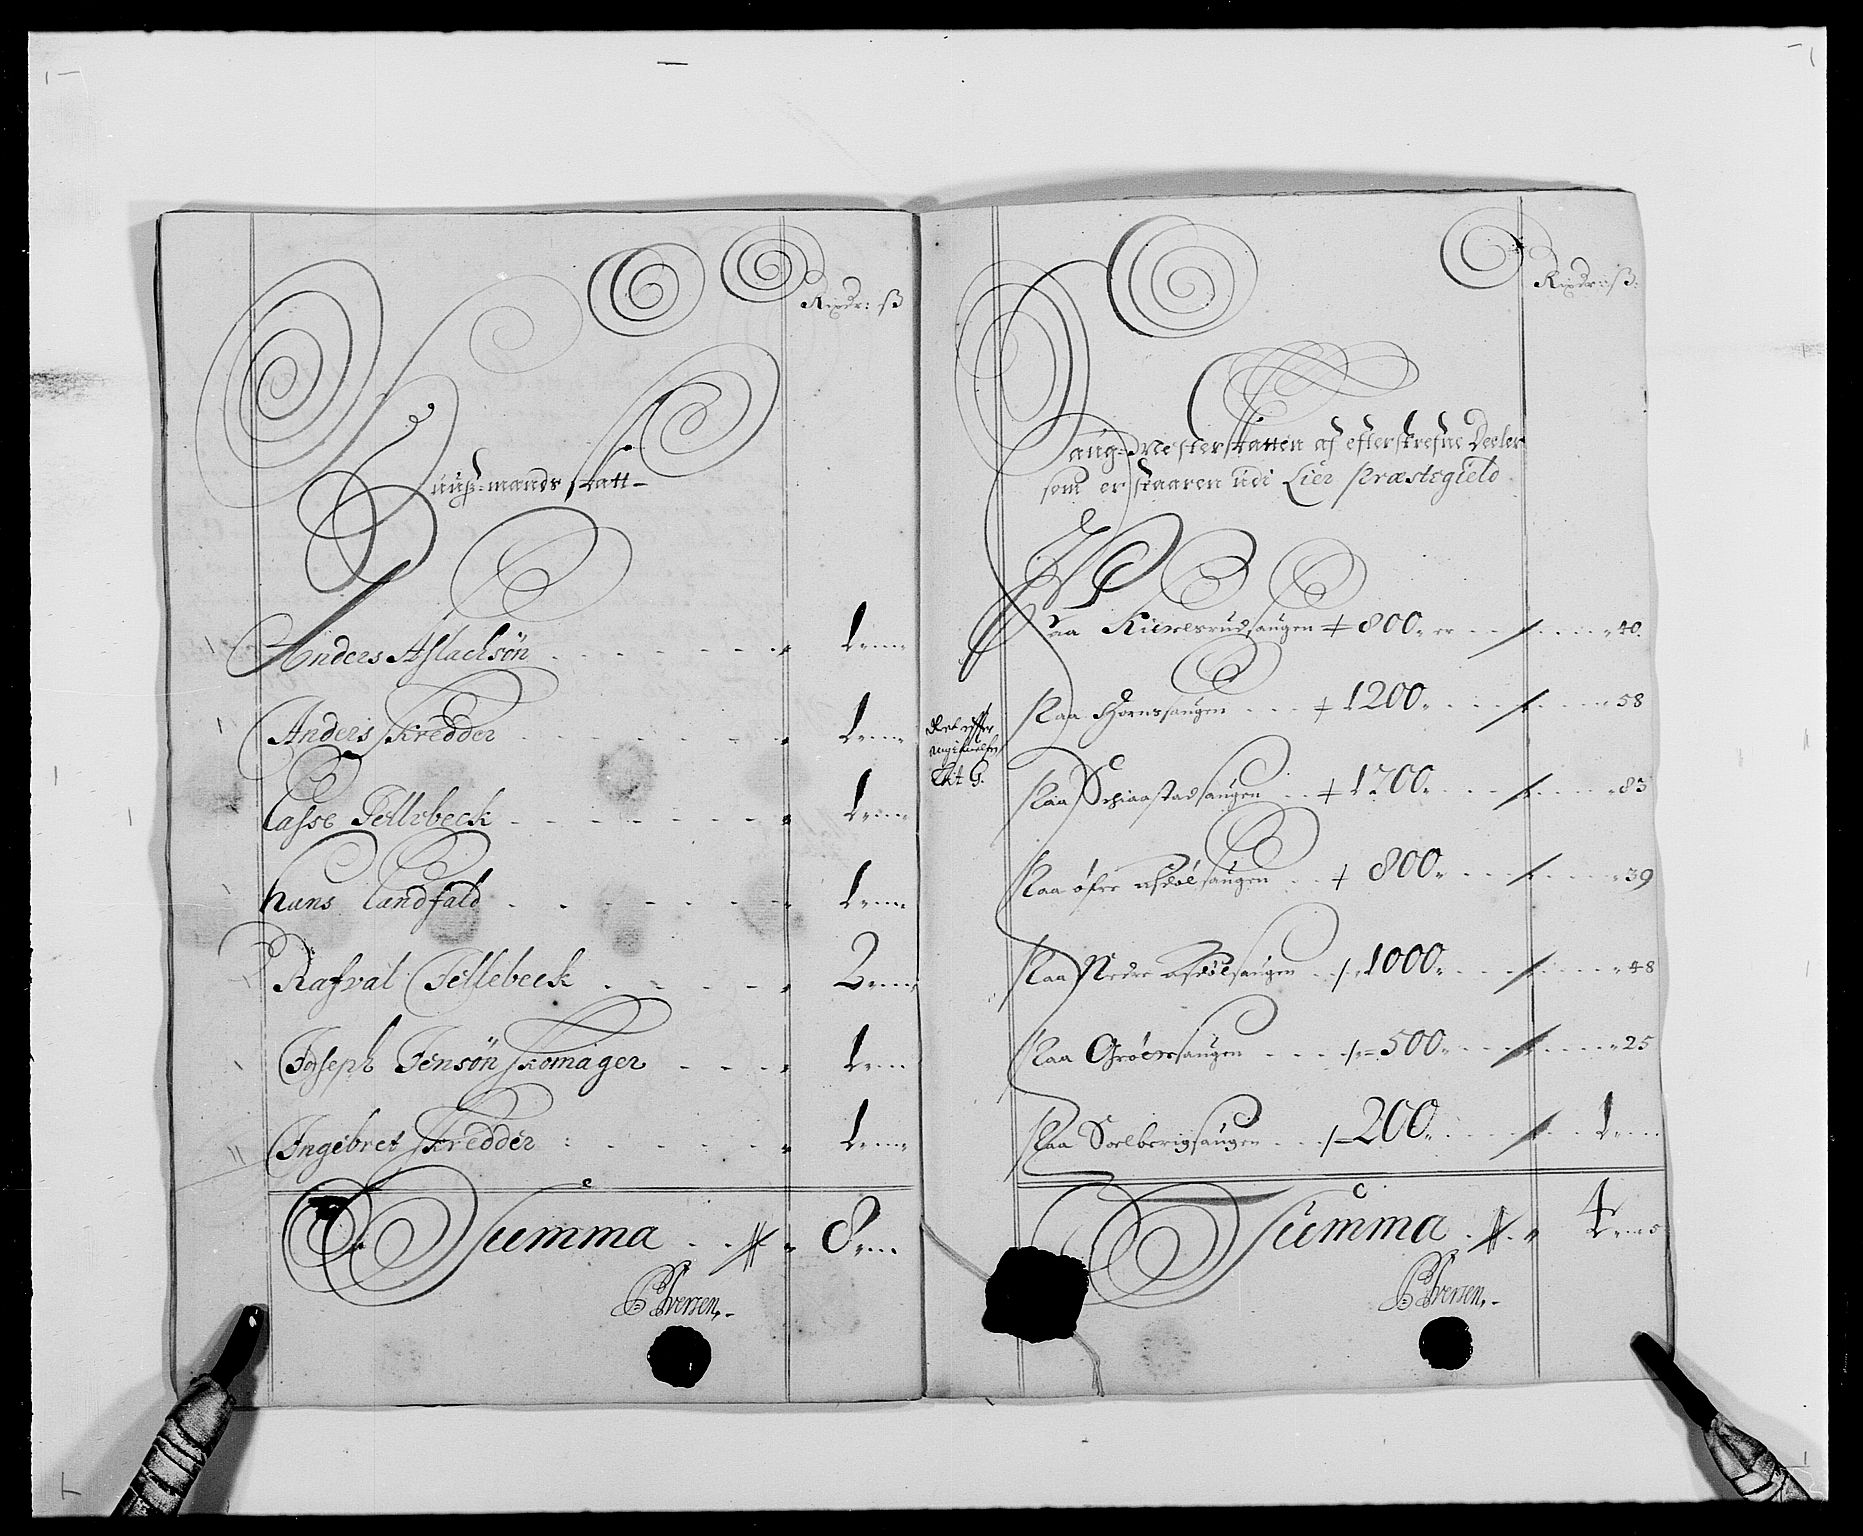 Rixdr: ß
Huuß-mands skatt-
Anders Aslachsön 1
Anders Skredder 1
Lasse Tellebeck 1
Hans Landfald 1
Rafval Tellebeck 2
Joseph Jensön Skomager 1
Ingebret Skredder 1
Summa 8
Iversen,-
Rixdr: ß:
Saug-Mesterskatten af efterskrefne Deeler
som er skaaren udi Lier Præstegield
Paa saugen 800 40
Paa saugen 1200 58
Paa saugen 1700 83
Paa öfre saugen 800 39
Paa Nedre saugen 1000 48
Paa saugen 500 25
Paa Soelbergsaugen 200 1
Lit G.
Summa 4 5
Iversen,-